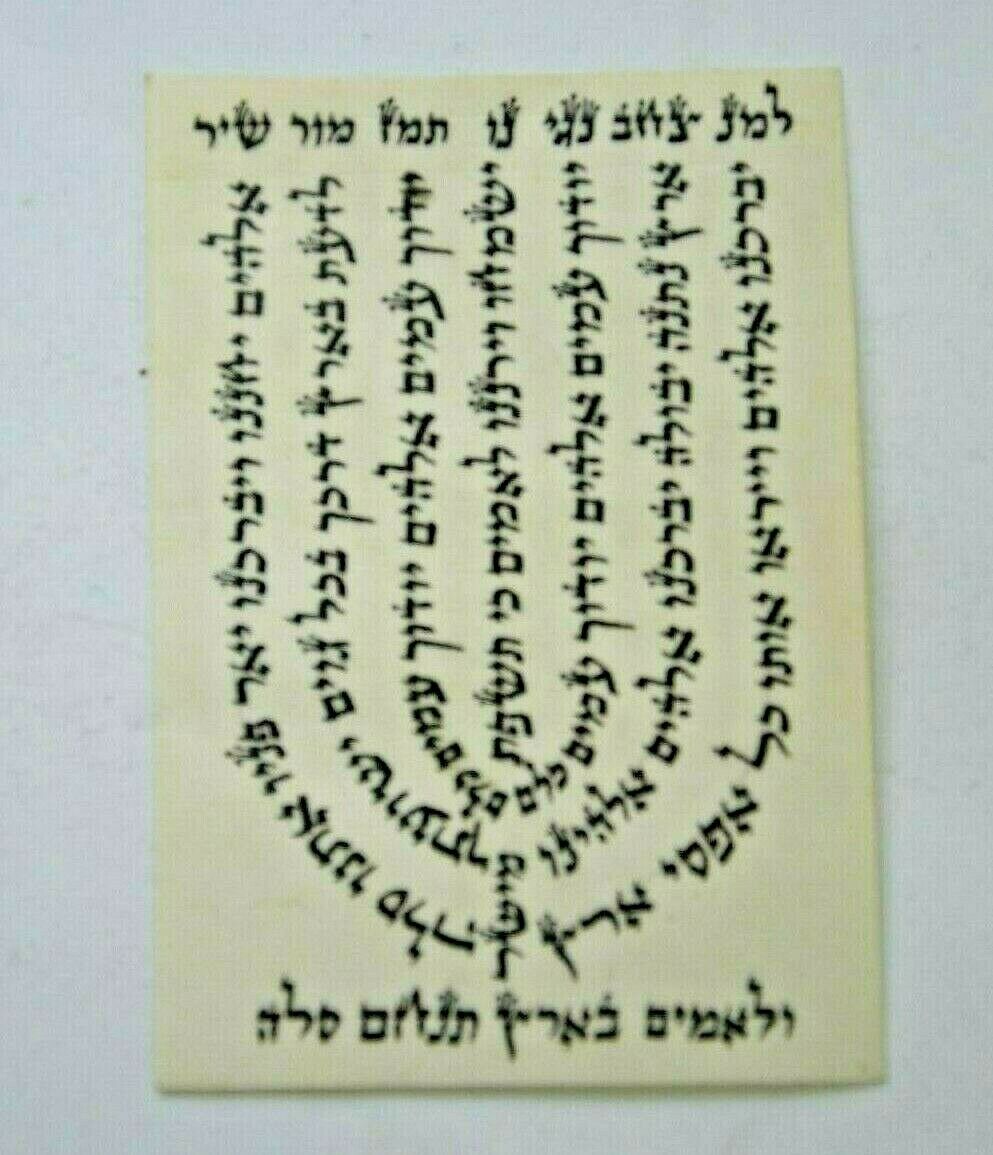 למנ צחב נגי נו תמז מור שיר
אלהים יחננו ויברכנו יאר פניו אתנו סלה
לדעת בארץ דרכך בכל גוים ישועתך
יודוך עמים אלהים יודוך עמים כלם
ישמחו וירננו לאמים כי תשפת מישר
יודוך עמים אלהים יודוך עמים כלם
ארץ נתנה יבולה יברכנו אלהים אלהינו
יברכנו אלהים וייראו אותו כל אפסי ארץ
ולאמים בארץ תנחם סלה